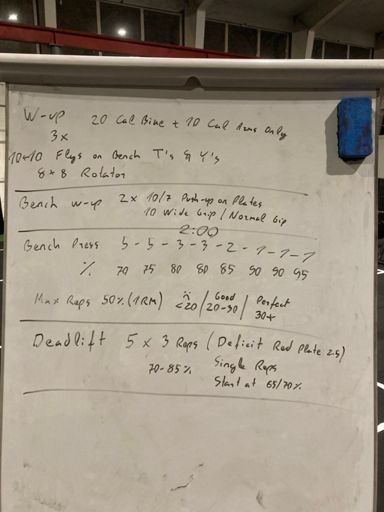 W-up 20 Cal Bike + 10 Cal Arms Only
3x
10+10 Flys on Bench T's & Y's
8+8 Rotator
Bench W-up 2x 10/7 Push-up on Plates
10 Wide Grip / Normal Grip
2:00
Bench Press 5 - 5 - 3 - 3 - 2 - 1 - 1 - 1
% 70 75 80 80 85 90 90 95
Max Reps 50% (1RM) <20 / Good 20-30 / Perfect 30+
Deadlift 5 x 3 Reps (Deficit Red Plate 2.5)
70-85% Single Reps
Start at 65/70%